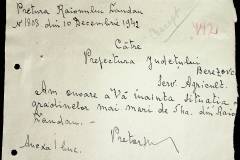 Pretura Raionului Landau
№ 1808 din 10 Decembrie 1942
Către
Prefectura Judetului
Berezovca
Serv. Agricult.
Am onoare a Vă înainta situatia
gradinelor mai mari de 5 ha. din Raio
Landau. -
Anexa 1 buc.
Pretor,